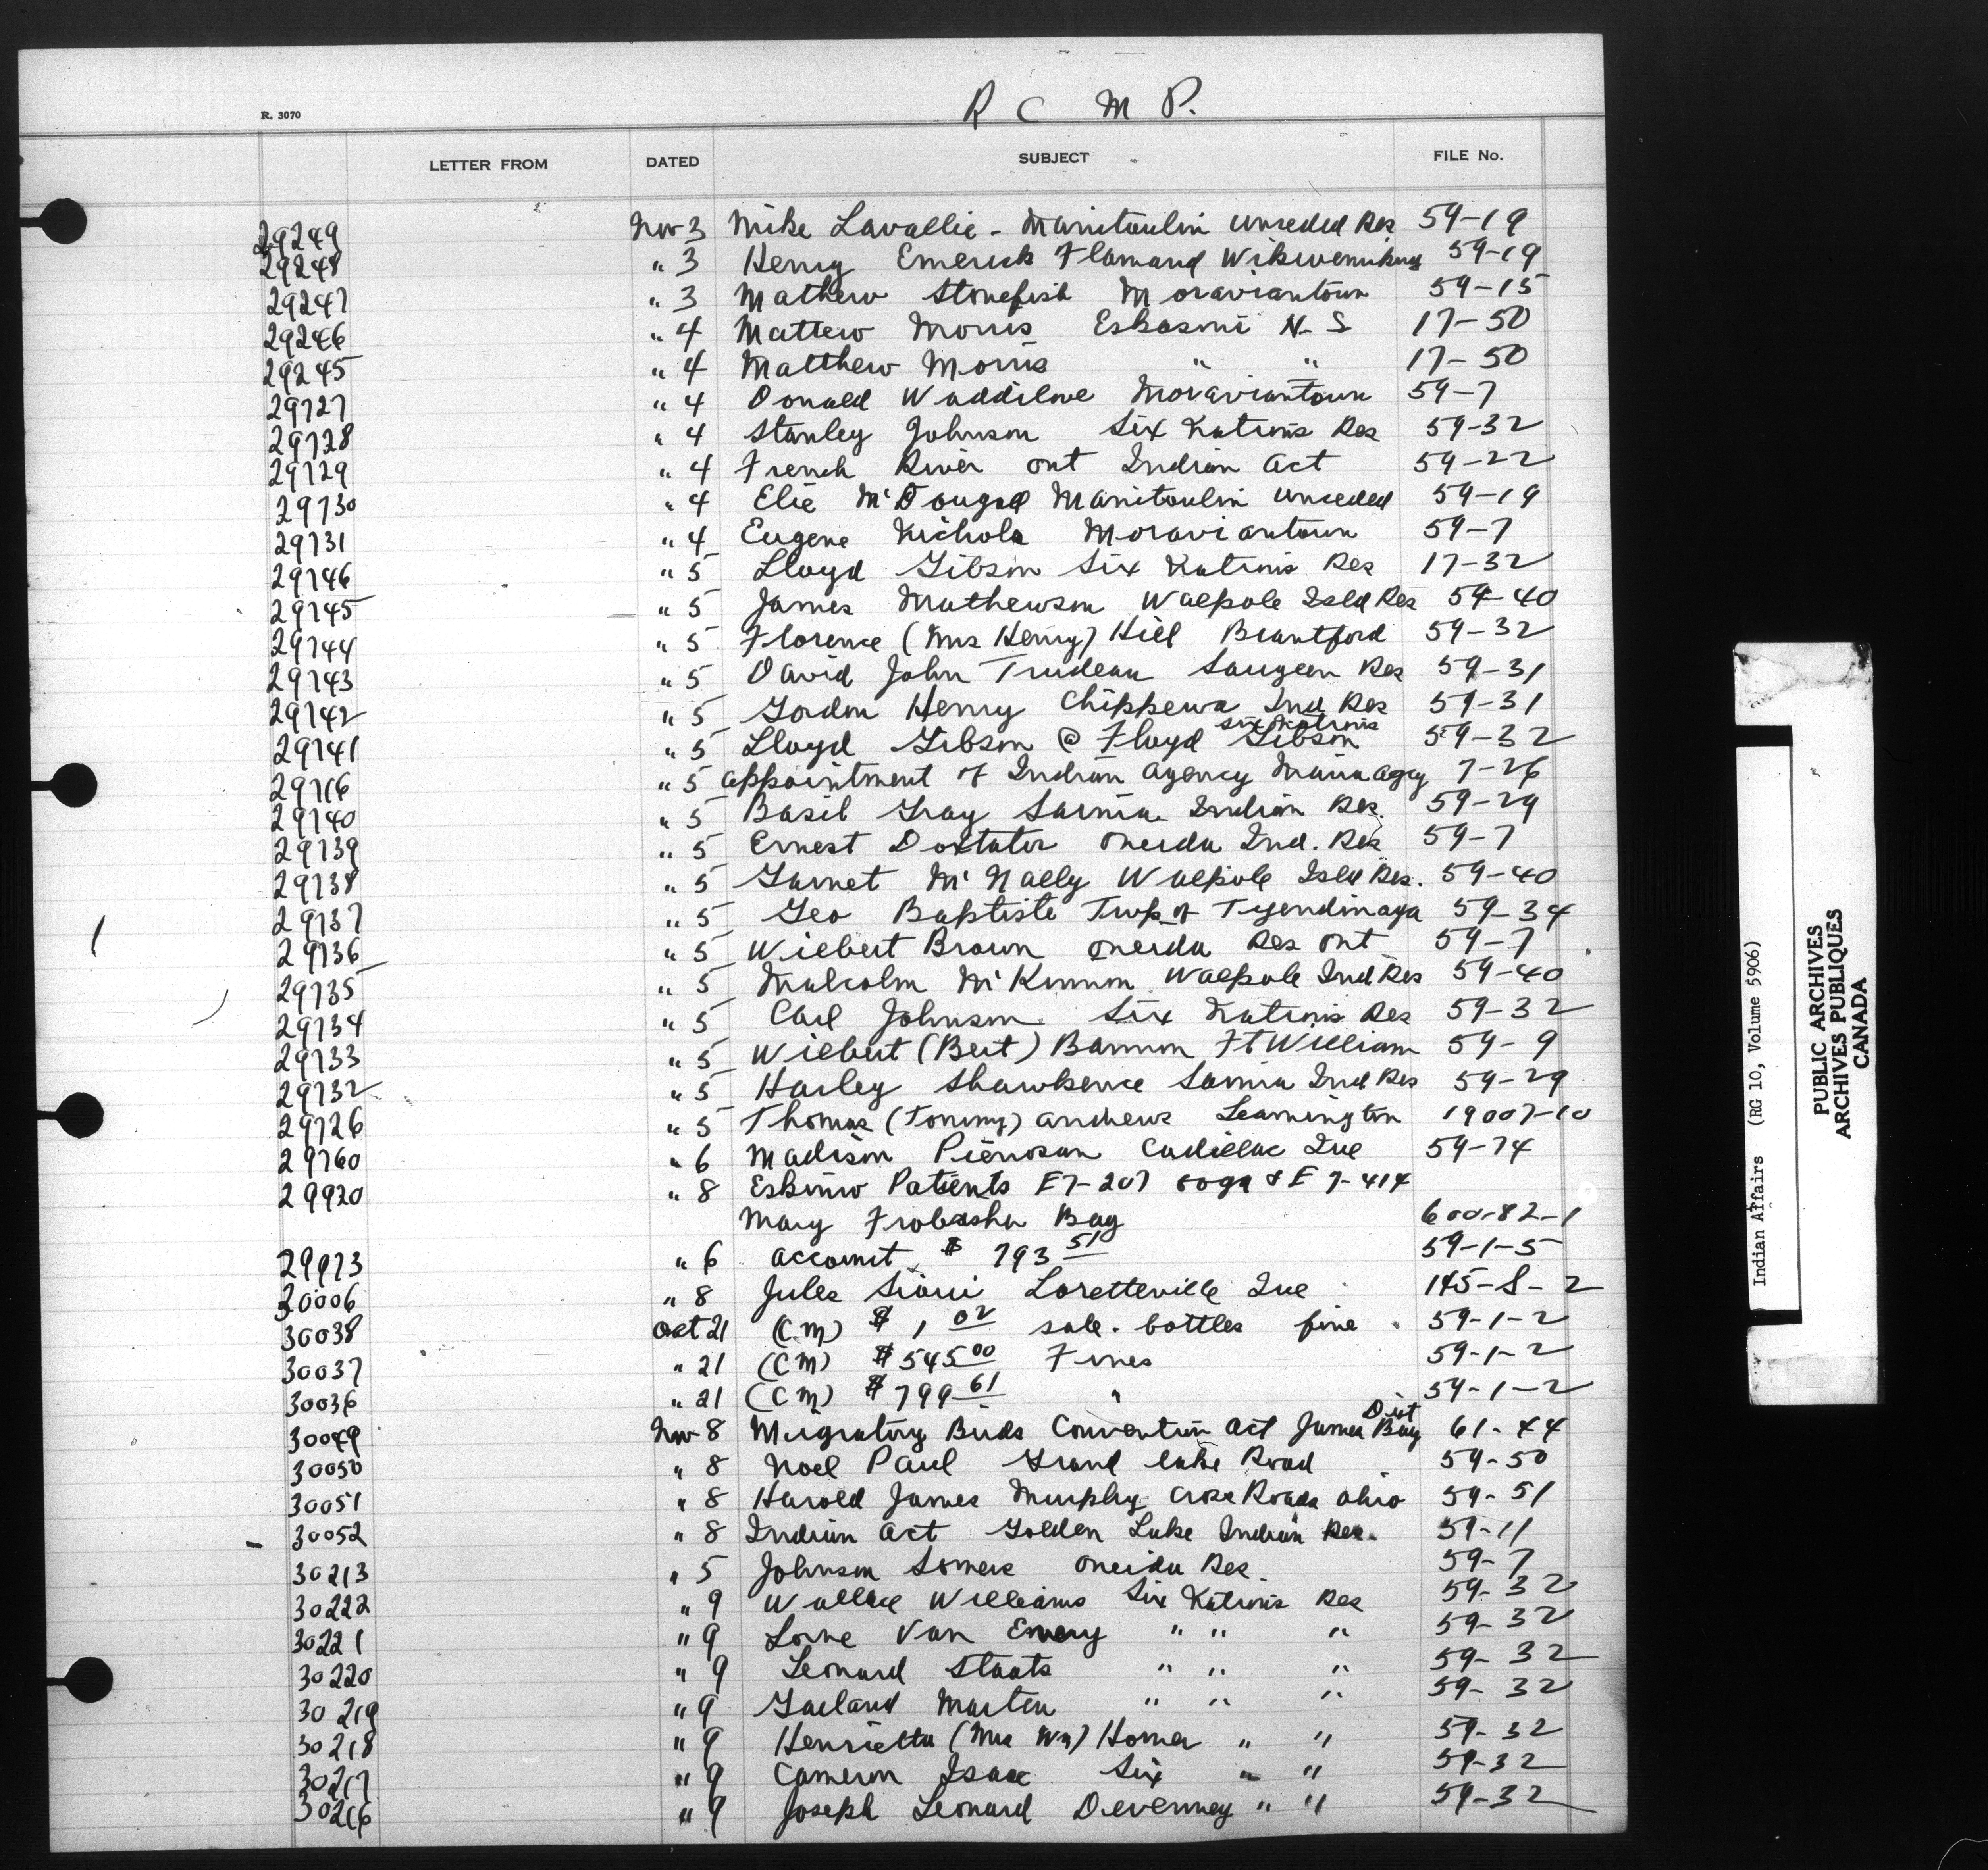 R C M P.
R. 3070
LETTER FROM DATED SUBJECT FILE No.
29249 Nov 3 Mike Lavallie - Manitoulin unceded Res 59-19
29248 " 3 Henry Emerick Flamand Wikwemikong 59-19
29247 " 3 Mathew Stonefish Moraviantown 59-15
29246 " 4 Mattew Morris Eskasoni N-S 17-50
29245 " 4 Matthew Morris " " 17-50
29727 " 4 Donald Waddilove Moraviantown 59-7
29728 " 4 Stanley Johnson Six Nations Res 59-32
29729 " 4 French River Ont Indian Act 59-22
29730 " 4 Elie McDougal Manitoulin unceded 59-19
29731 " 4 Eugene Nichols Moraviantown 59-7
29746 " 5 Lloyd Gibson Six Nations Res 17-32
29745 " 5 James Mathewson Walpole Isld Res 59-40
29744 " 5 Florence (Mrs Henry) Hill Brantford 59-32
29743 " 5 David John Trudeau Saugeen Res 59-31
29742 " 5 Gordon Henry Chippewa Ind Res 59-31
29741 " 5 Lloyd Gibson @ Floyd Gibson Six Nations 59-32
29716 " 5 appointment of Indian Agency Agcy 7-26
29740 " 5 Basil Gray Sarnia Indian Res. 59-29
29739 " 5 Ernest Doxtator Oneida Ind. Res 59-7
29738 " 5 Garnet McNally Walpole Isld Res. 59-40
29737 " 5 Geo Baptiste Twp of Tyendinaga 59-34
29736 " 5 Wilbert Brown Oneida Res Ont 59-7
29735 " 5 Malcolm McKinnon Walpole Ind Res 59-40
29734 " 5 Carl Johnson Six Nations Res 59-32
29733 " 5 Wilbert (Bert) Bannon Ft William 59-9
29732 " 5 Harley Shawkence Sarnia Ind Res 59-29
29726 " 5 Thomas (Tommy) Andrews Leamington 19007-10
29760 " 6 Madison Cadillac Que 59-74
29920 " 8 Eskimo Patients E7-207 & E 7-414
Mary Frobisher Bay 600-82-1
29973 " 6 account $ 793 51 59-1-5
30006 " 8 Jules Sioui Loretteville Que 145-S-2
30038 Oct 21 (CM) $ 1 02 sale. bottles fine 59-1-2
30037 " 21 (CM) $ 545 00 Fines 59-1-2
30036 " 21 (CM) $ 799 61 " 59-1-2
30049 Nov 8 Migratory Birds Convention Act James Bay Dist 61-44
30050 " 8 Noel Paul Grand Lake Road 59-50
30051 " 8 Harold James Murphy Cross Roads Ohio 59-51
30052 " 8 Indian Act Golden Lake Indian Res. 59-11
30213 " 5 Johnson Somers Oneida Res 59-7
30222 " 9 Wallace Williams Six Nations Res 59-32
30221 " 9 Lorne Van Every " " " 59-32
30220 " 9 Leonard Staats " " " 59-32
30219 " 9 Garland Martin " " " 59-32
30218 " 9 Henrietta (Mrs Wm) Homer " " 59-32
30217 " 9 Cameron Isaac Six " " 59-32
30216 " 9 Joseph Leonard Devenney " " 59-32
Indian Affairs (RG 10, Volume 5906)
PUBLIC ARCHIVES
ARCHIVES PUBLIQUES
CANADA